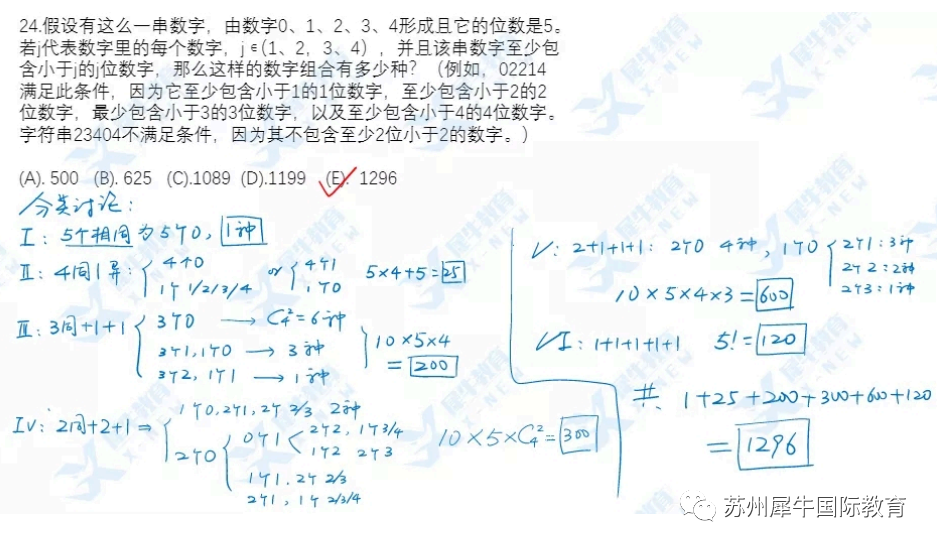 24.假设有这么一串数字，由数字0、1、2、3、4形成且它的位数是5。
若j代表数字里的每个数字，j ∈(1、2，3、4），并且该串数字至少包
含小于j的j位数字，那么这样的数字组合有多少种？（例如，02214
满足此条件，因为它至少包含小于1的1位数字，至少包含小于2的2
位数字，最少包含小于3的3位数字，以及至少包含小于4的4位数字。
字符串23404不满足条件，因为其不包含至少2位小于2的数字。）
(A). 500 (B). 625 (C).1089 (D).1199 (E). 1296
分类讨论：
I：5个相同为5个0，1种
II：4同1异：4个0 1个1/2/3/4 or 4个1 1个0 5×4+5=25
III：3同+1+1 3个0 → C₄²=6种
3个1,1个0 → 3种
3个2,1个1 → 1种
10×5×4
=200
IV：2同+2+1 ⇒ 1个0,2个1,2个2/3 2种
2个0
0个1 2个2,1个3/4
1个2 2个3
1个1,2个2/3
2个1,1个2/3/4
10×5×C₄²=300
V：2+1+1+1：2个0 4种，1个0 2个1：3种
2个2：2种
2个3：1种
10×5×4×3=600
VI：1+1+1+1+1 5!=120
共 1+25+200+300+600+120
=1296
苏州犀牛国际教育
犀牛教育
X-NEW